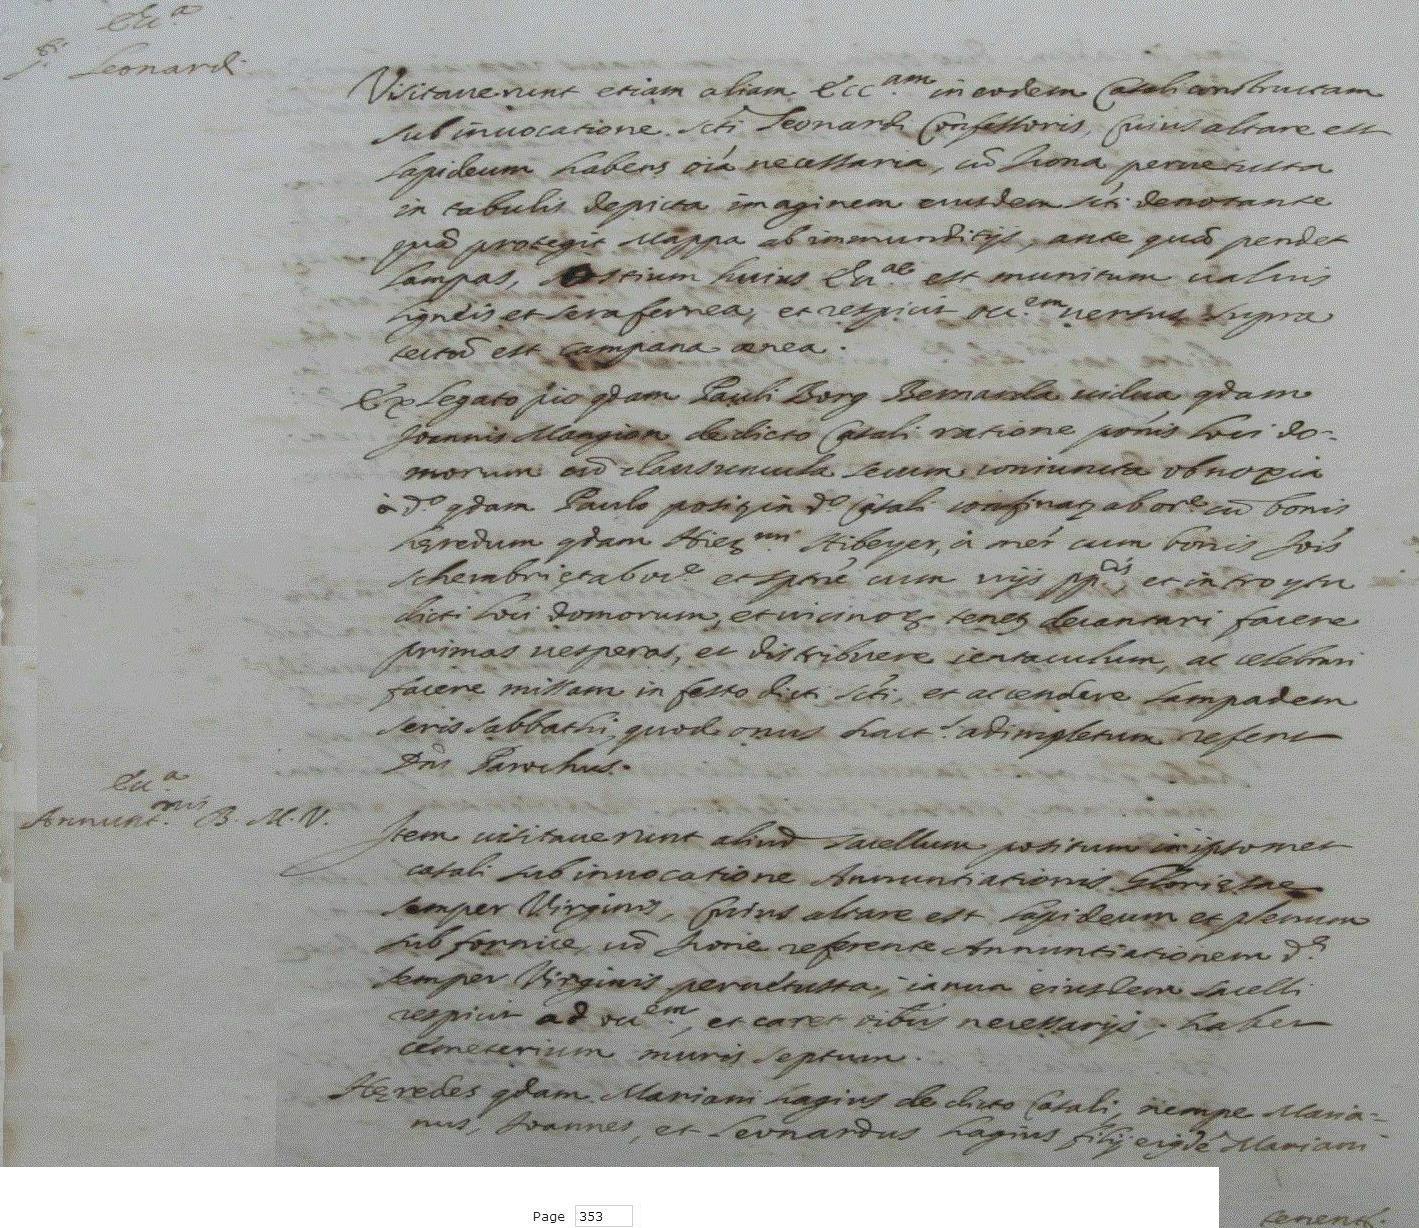 Ecc.a
S.ti Leonardi
Visitauerunt etiam aliam Ecc.am in eodem Casali constructam
sub inuocatione Scti Leonardi Confessoris, Cuius altare est
lapideum habens oia necessaria, cu Icona peruetusta
in tabulis depicta imaginem eiusdem Scti denotante
qua protegit Mappa ab immunditijs, ante qua pendet
lampas, ostium huius Ecc.ae est munitum ualuis
ligneis et sera ferrea, et respicit occ.em uersus supra
tectu est campana ærea.
Ex legato pio qdam Pauli Borg Bernarda uidua qdam
Joannis Mangion de dicto Casali ratione loci do-
morum cu clausuncula secum coniuncta obnoxia
à d.o qdam Paulo in d.o Casali ab or.e cu bonis
heredum qdam cum bonis
Schembri et ab occ.e et cum uijs et introytu
dicti loci domorum, et decantari facere
primas uesperas, et distribuere ientaculum, ac celebrari
facere missam in festo dicti Scti, et accendere lampadem
seris sabbathi, quod onus adimpletum refert
Dns Parochus.
Ecc.a
Annunt.nis B. M. V.
Item uisitauerunt aliud sacellum positum in ipsomet
casali sub inuocatione Annuntiationis Gloriosae
semper Virginis, Cuius altare est lapideum et plenum
sub fornice, cu Icone referente Annuntiationem d.e
semper Virginis peruetusta, ianua eiusdem sacelli
respicit ad occ.em, et caret oibus necessarijs, habet
cemeterium muris septum.
Heredes qdam Mariani hagius de dicto Casali, nempe Maria=
nus, Joannes, et Leonardus hagius filij Mariani
Page 353